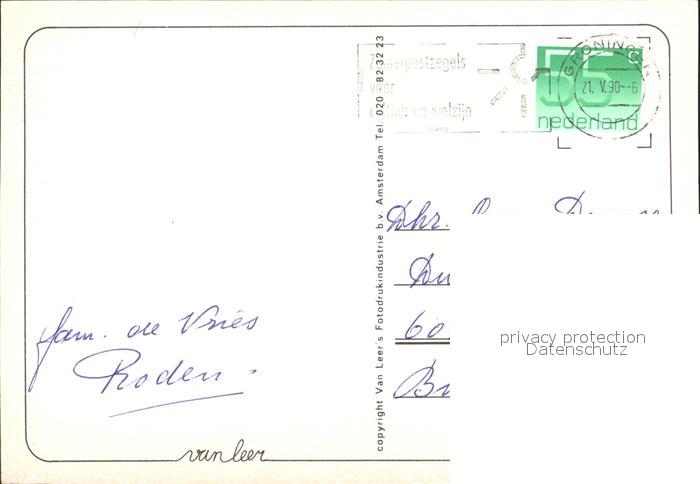 Zomerpostzegels
voor
cultuur en welzijn
GRONINGEN
21. V. 90--6
55
nederland
copyright Van Leer's Fotodrukindustrie b.v. Amsterdam Tel. 020 - 82 32 23
Dhr.
Du
60
Br
privacy protection
Datenschutz
fam. de Vries
Roden.
van leer